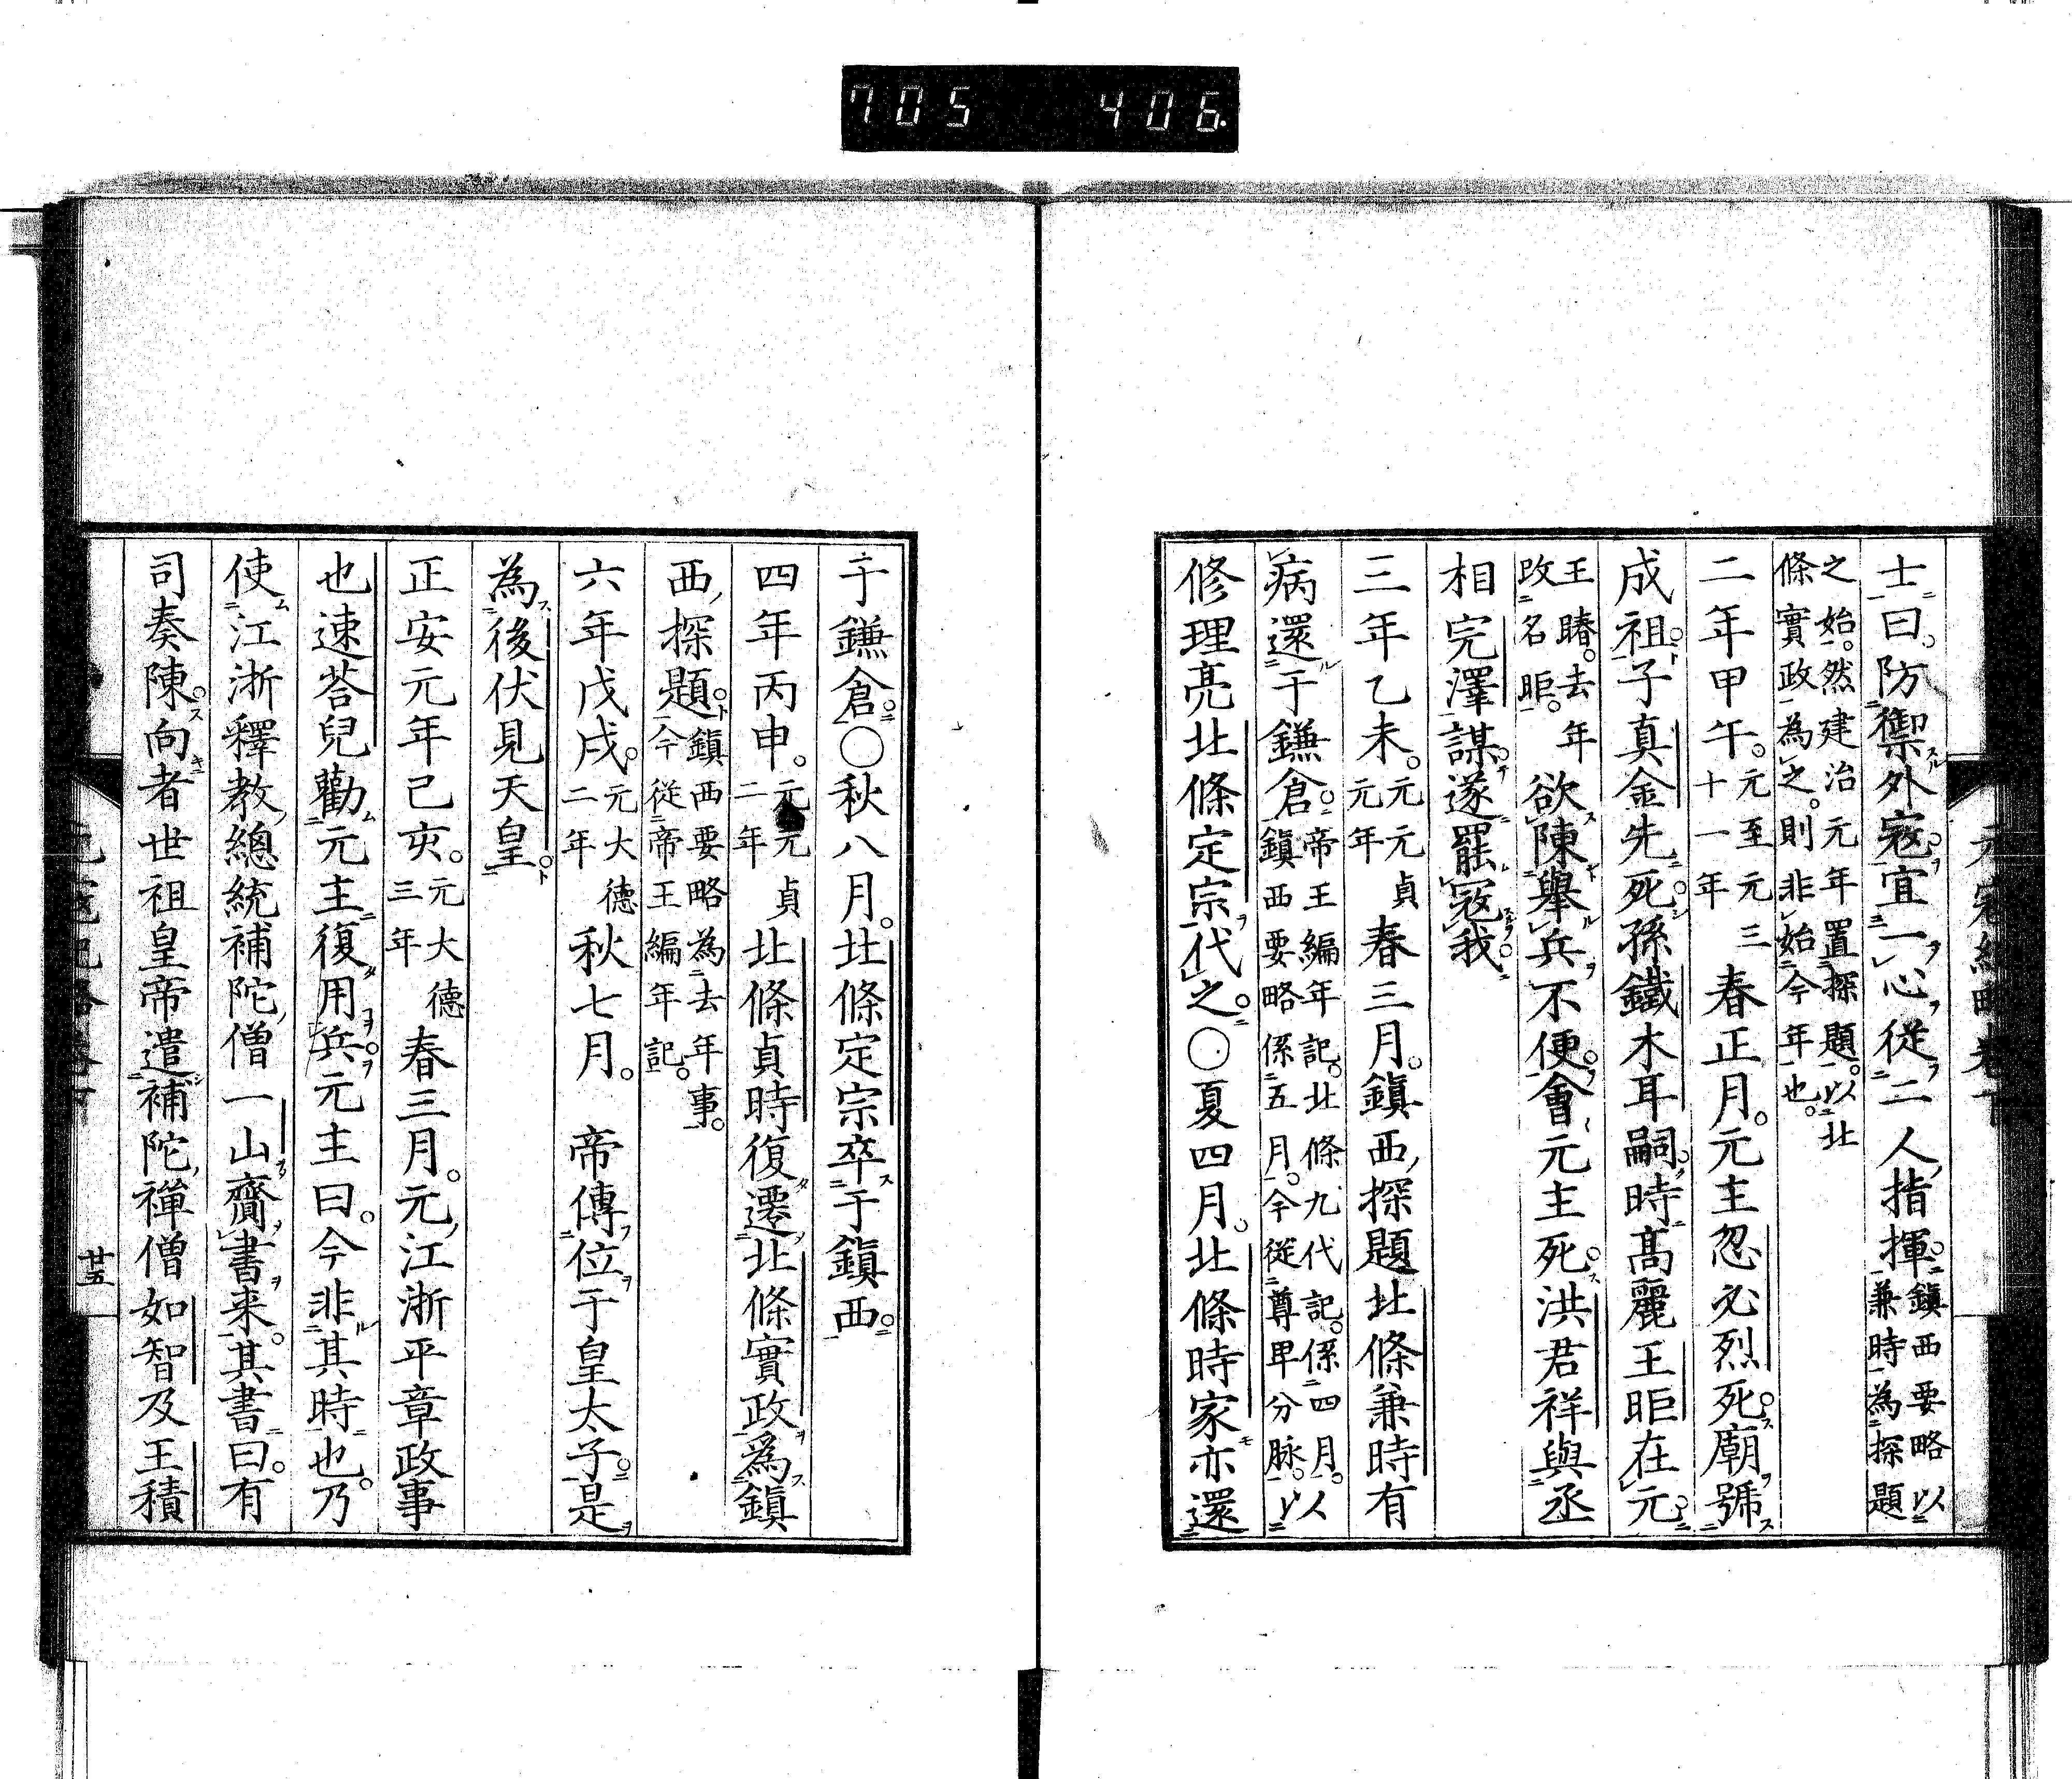 705 406
士曰。防禦外寇。宜一心從二人指揮。鎮西要略以兼時為探題
之始。然建治元年置探題。以北條實政為之。則非始今年也。
二年甲午。元至元三十一年春正月。元主忽必烈死。廟號
成祖。子真金先死。孫鐵木耳嗣。時高麗王昛在元。
王賰。去年改名昛。欲陳舉兵不便。會元主死。洪君祥與丞
相完澤謀。遂罷寇我。
三年乙未。元元貞元年春三月。鎮西探題北條兼時有
病還于鎌倉。帝王編年記。北條九代記。係四月。鎮西要略係五月。今從尊卑分脉。以
修理亮北條定宗代之。○夏四月。北條時家亦還
于鎌倉。○秋八月。北條定宗卒于鎮西。
四年丙申。元元貞二年北條貞時復遷北條實政為鎮
西探題。鎮西要略為去年事。今從帝王編年記。
六年戊戌。元大德二年秋七月。 帝傳位于皇太子。是
為後伏見天皇。
正安元年己亥。元大德三年春三月。元江浙平章政事
也速荅兒勸元主復用兵。元主曰。今非其時也。乃
使江浙釋教總統補陀僧一山齎書来。其書曰。有
司奏陳。向者世祖皇帝遣補陀禪僧如智及王積
廿五